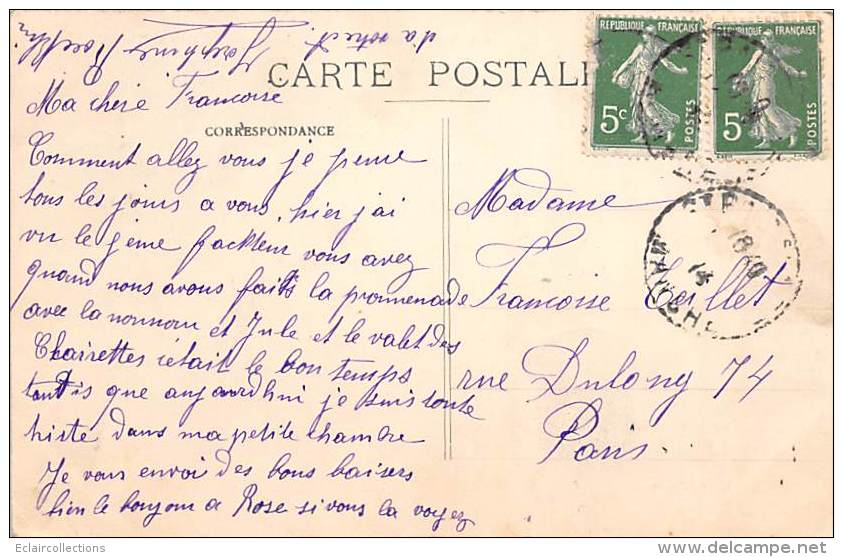 CARTE POSTALE
Ma chère Francoise
CORRESPONDANCE
Comment allez vous je pense
tous les jours a vous, hier j'ai
vu le facteur vous avez
quand nous avons faits la promenade
avec la nounou et Jule et le valet des
Charrettes s'était le bon temps
tantis que aujourdhui je suis toute
triste dans ma petite chambre
Je vous envoi des bons baisers
bien le bonjour a Rose si vous la voyez
Madame
Francoise
rue Dulong 74
Paris
REPUBLIQUE FRANÇAISE
5c
POSTES
REPUBLIQUE FRANÇAISE
5c
POSTES
MANCHE
Eclaircollections
www.delcampe.net